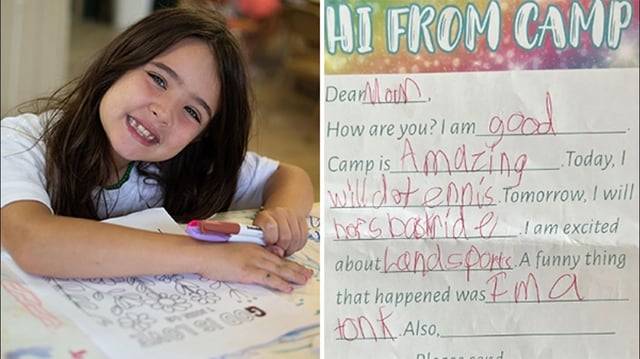 HI FROM CAMP
Dear Mom,
How are you? I am good.
Camp is Amazing. Today, I
will do tennis. Tomorrow, I will
hors backride. I am excited
about Land sports. A funny thing
that happened was I m a
tonk. Also,
Please send
GOD IS LOVE